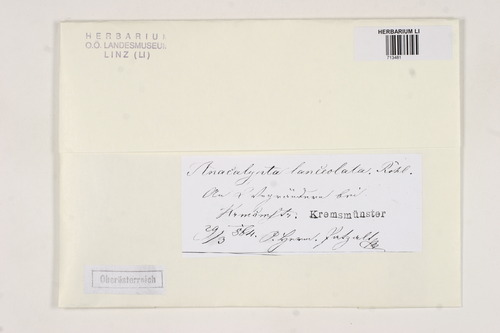 HERBARIUM
O.Ö. LANDESMUSEUM
LINZ (LI)
HERBARIUM LI
713481
Anacalypta lanceolata. Röhl.
An Wegrändern bei
Kremsmünster
29/3
Oberösterreich